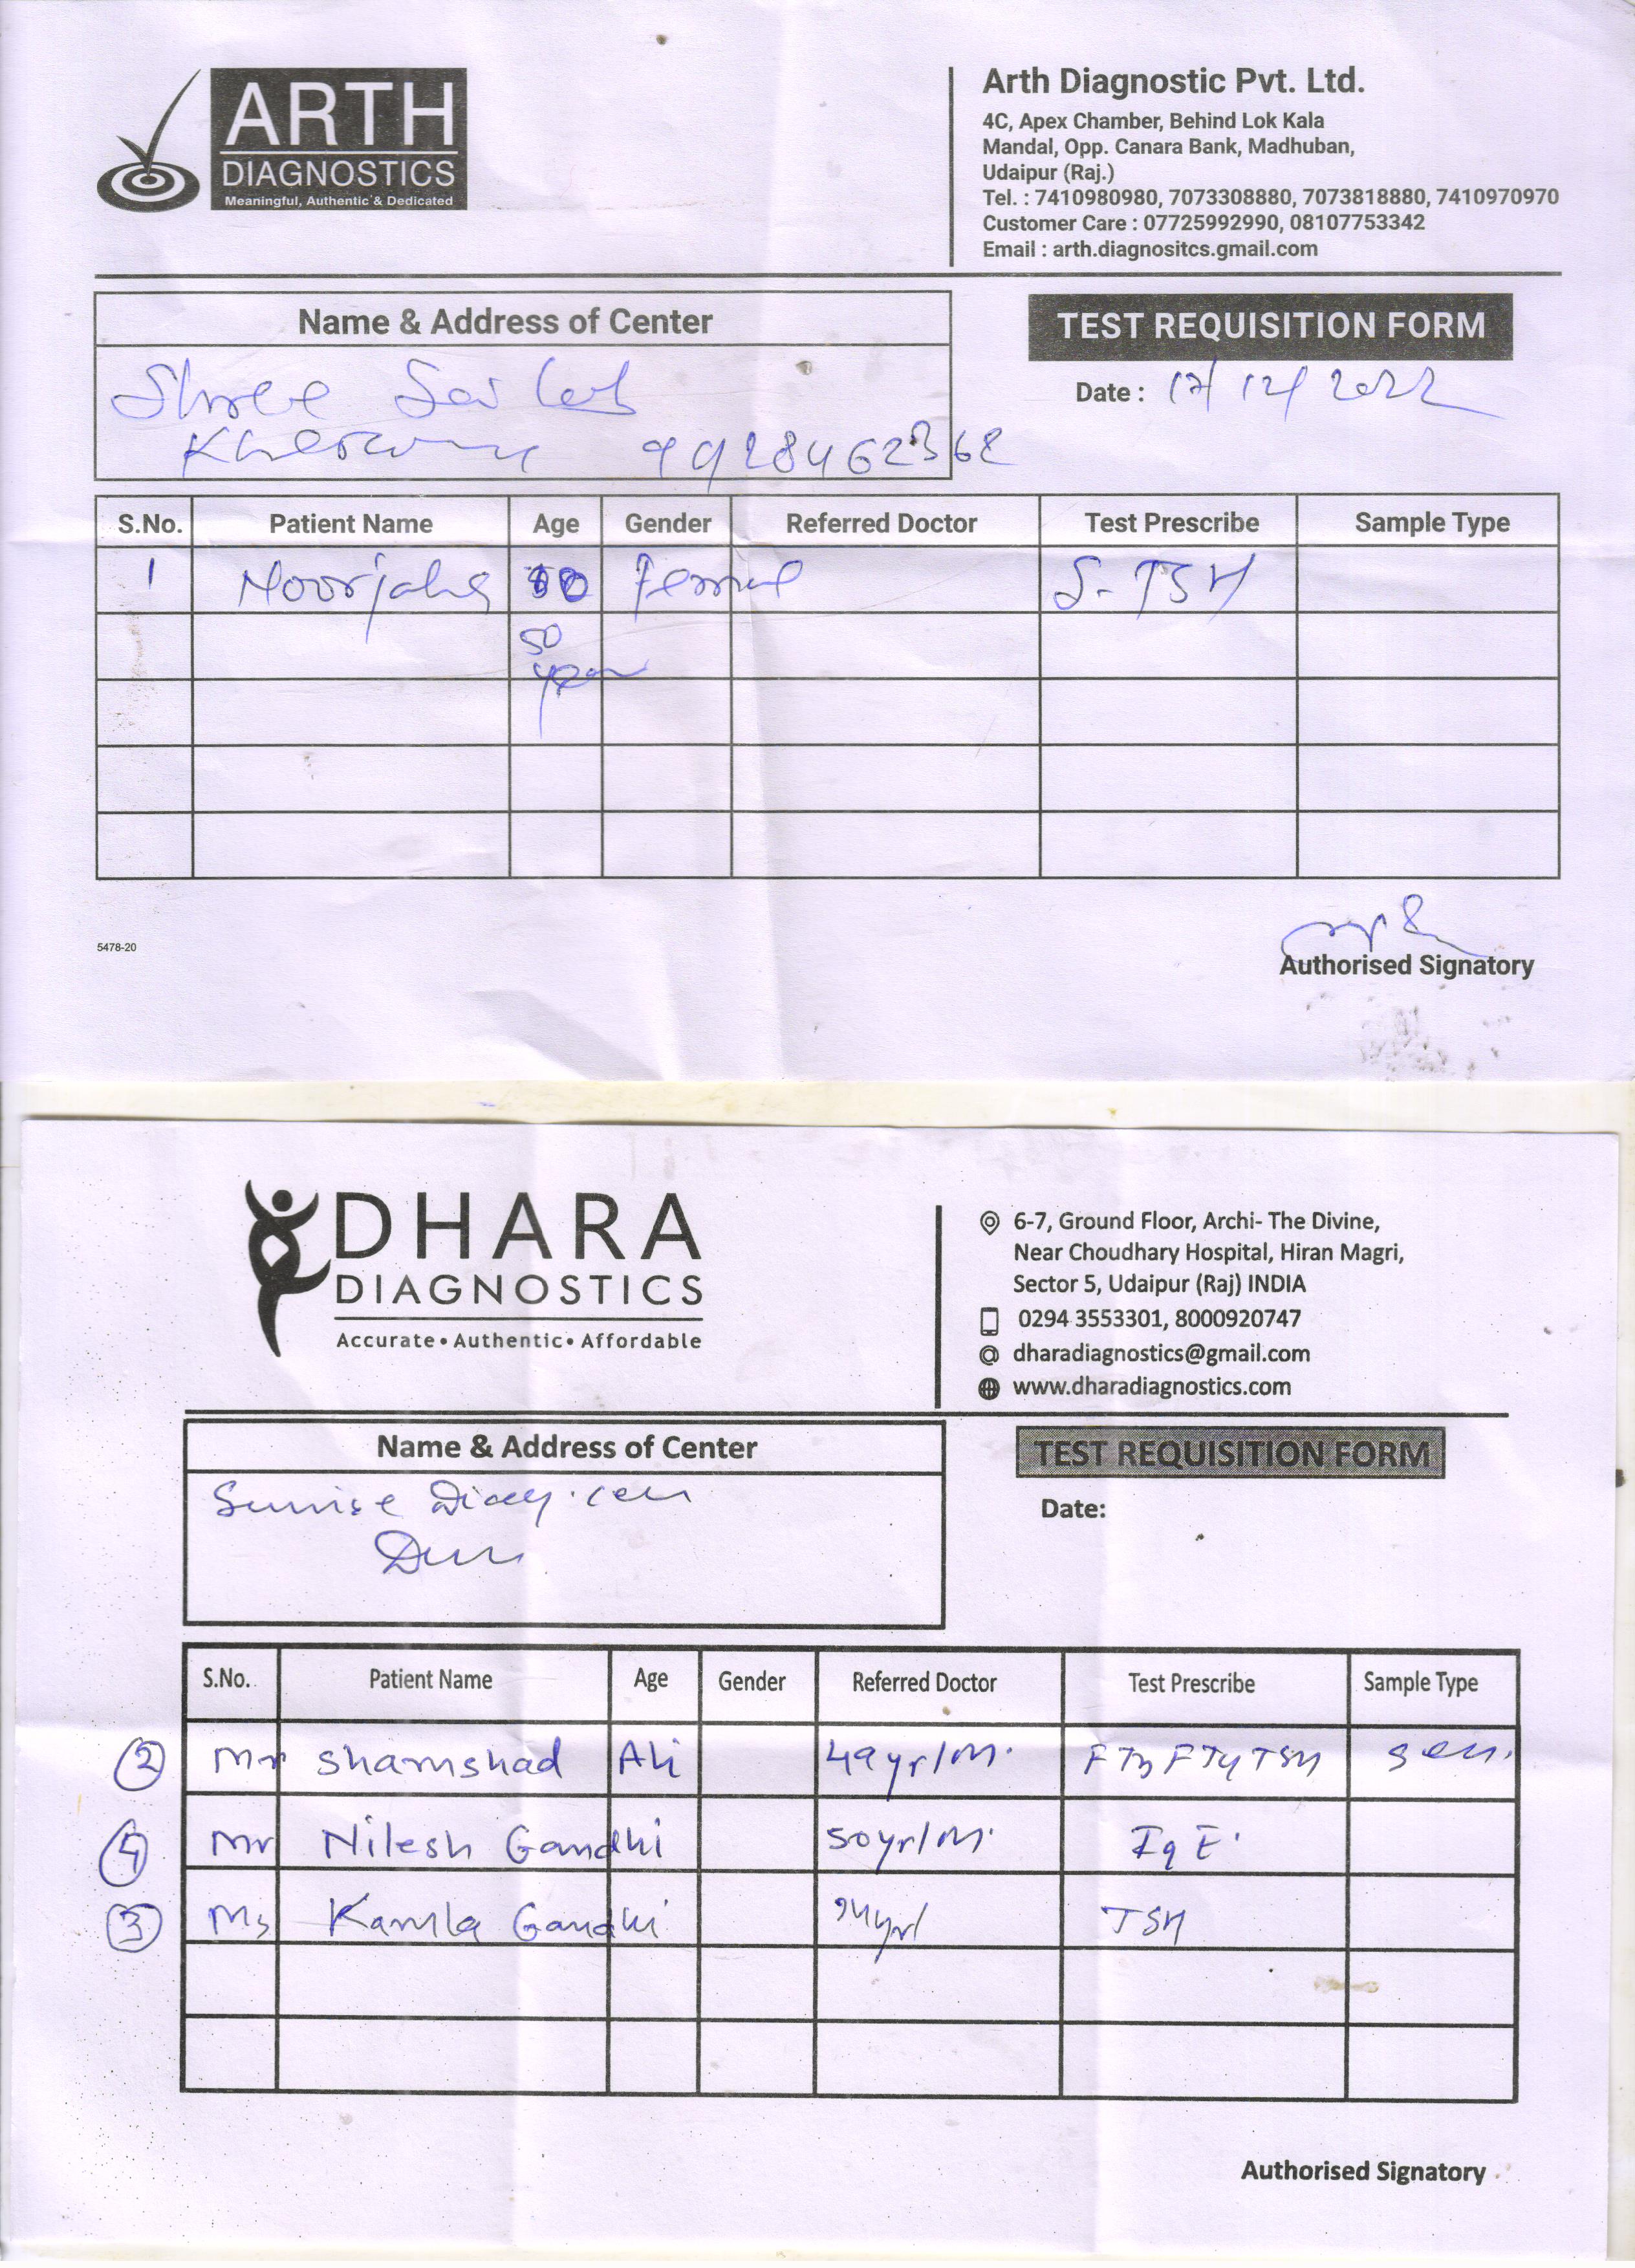 ARTH
DIAGNOSTICS
Meaningful, Authentic & Dedicated
Arth Diagnostic Pvt. Ltd.
4C, Apex Chamber, Behind Lok Kala
Mandal, Opp. Canara Bank, Madhuban,
Udaipur (Raj.)
Tel. : 7410980980, 7073308880, 7073818880, 7410970970
Customer Care : 07725992990, 08107753342
Email : arth.diagnositcs.gmail.com
Name & Address of Center
TEST REQUISITION FORM
Shree Sai Lab
Date : 17/12/2022
9928462368
S.No. Patient Name Age Gender Referred Doctor Test Prescribe Sample Type
1 Noorjaha S-TSH
50
year
5478-20
Authorised Signatory
DHARA
DIAGNOSTICS
Accurate • Authentic • Affordable
6-7, Ground Floor, Archi- The Divine,
Near Choudhary Hospital, Hiran Magri,
Sector 5, Udaipur (Raj) INDIA
0294 3553301, 8000920747
dharadiagnostics@gmail.com
www.dharadiagnostics.com
Name & Address of Center
TEST REQUISITION FORM
Sunrise
Date:
S.No. Patient Name Age Gender Referred Doctor Test Prescribe Sample Type
2 Mr Shamshad Ali 49yr/M. FT3 FT4 TSH
4 Mr Nilesh Gandhi 50yr/M. IgE.
3 Ms Kamla Gandhi TSH
Authorised Signatory